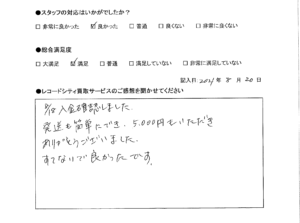 ●スタッフの対応はいかがでしたか?
□非常に良かった ☑良かった □普通 □良くない □非常に良くない
●総合満足度
□大満足 ☑満足 □普通 □満足していない □非常に満足していない
記入日 2021年 8月 20日
●レコードシティ買取サービスのご感想を聞かせてください
入金確認しました。
発送も簡単にでき、5,000円もいただき
ありがとうございました。
すてないで良かったです。